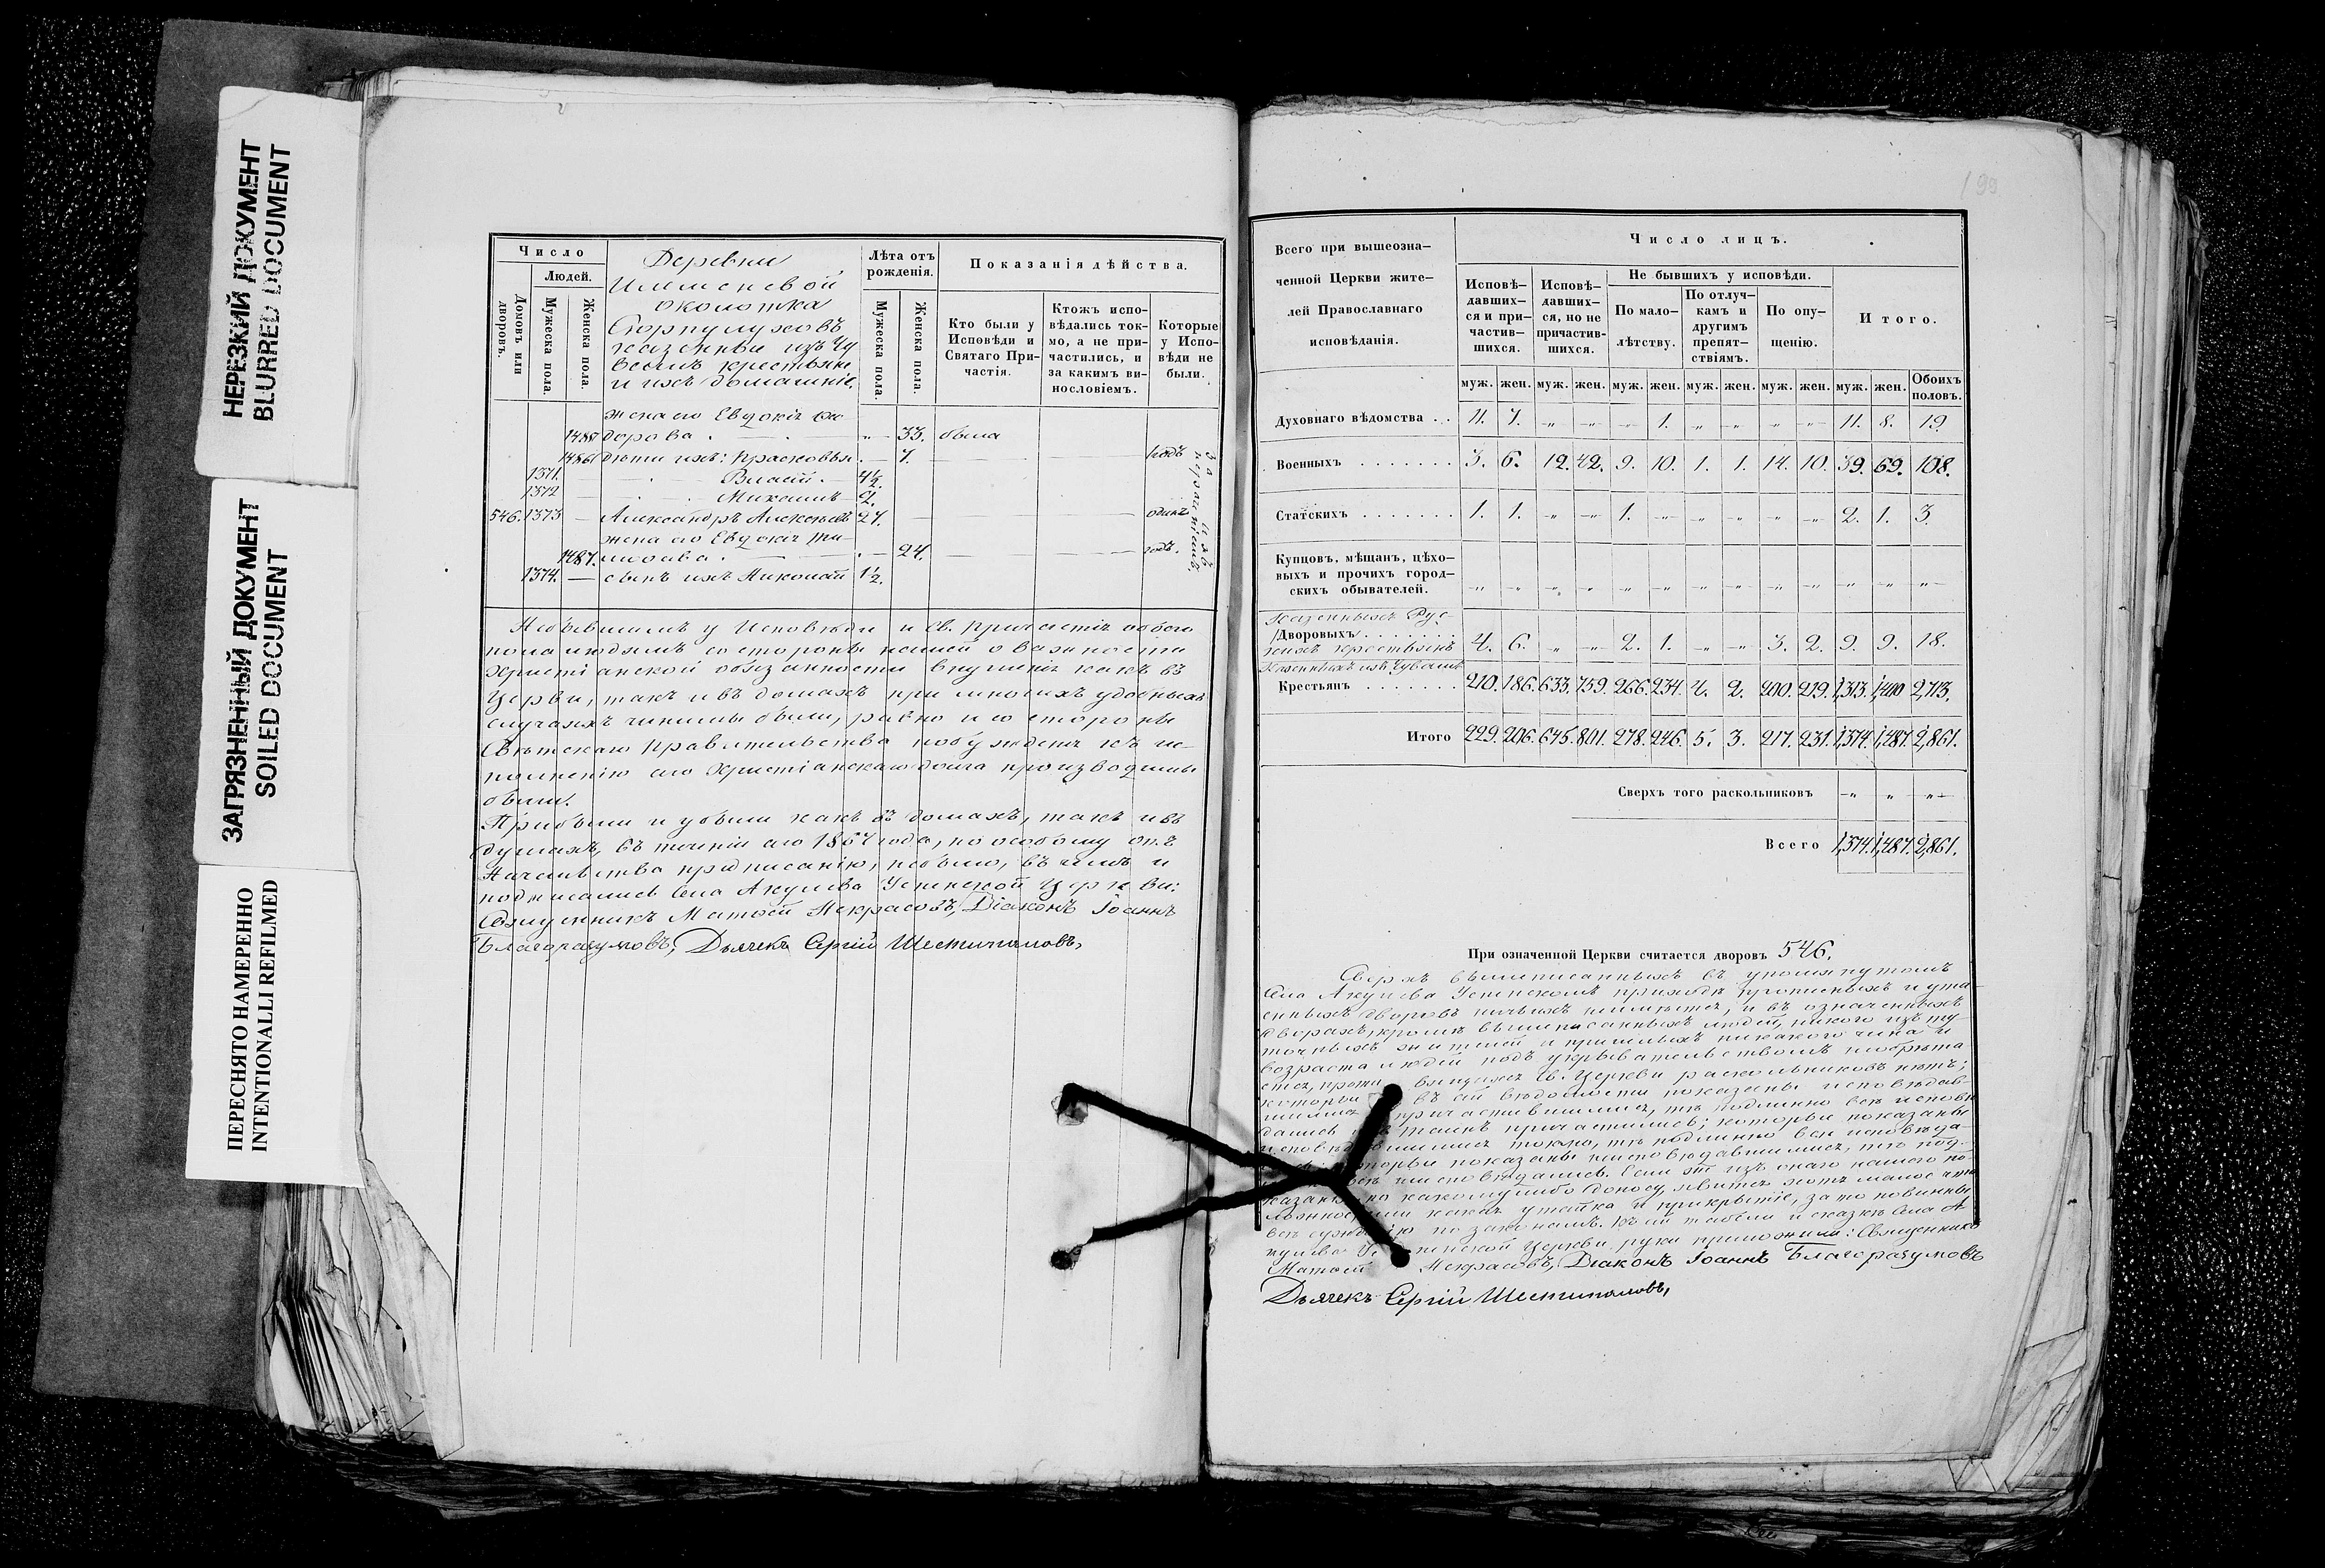 НЕРЕЗКИЙ ДОКУМЕНТ
BLURRED DOCUMENT
ЗАГРЯЗНЕННЫЙ ДОКУМЕНТ
SOILED DOCUMENT
ПЕРЕСНЯТО НАМЕРЕННО
INTENTIONALLI REFILMED
Число
Домовъ или дворовъ.
Людей.
Мужеска пола.
Женска пола.
Деревни
околотка
казенные изъ Чу
вашъ крестьяне
и ихъ домашніе.
Лѣта отъ рожденія.
Мужеска пола.
Женска пола.
Показанія дѣйства.
Кто были у Исповѣди и Святаго Причастія.
Ктожъ исповѣдались токмо, а не причастились, и за какимъ винословіемъ.
Которые у Исповѣди не были.
жена его Евдокія Ѳео
1485 дорова. — " — 33. была
1486 дѣти ихъ: Прасковья . — 7. — — годъ
1371. — Власій. — 4½.
1372 — Михаилъ — 2.
546. 1373 — Александръ Алексѣевъ 27. — — одинъ
жена его Евдокія Ти-
1487. моѳеева. — . — 24. — — годъ.
1374. — сынъ ихъ Николай 1½.
Небывшимъ у Исповѣди и Св. причастія обоего
пола людямъ со стороны нашей о важности
Христіанской обязанности внушенія какъ въ
Церкви, такъ и въ домахъ при многихъ удобныхъ
случаяхъ чинимы были, равно и со стороны
Свѣтскаго Правительства побужденія къ ис-
полненію сего Христіанскаго долга производимы
были.
Прибыли и убыли какъ въ домахъ, такъ и въ
душахъ, въ теченіи сего 1857 года, по особому отъ
Начальства предписанію, небыло, въ чемъ и
подписались Села Акулева Успенской Церкви:
Священникъ Матѳей Некрасовъ, Діаконъ Іоаннъ
Благоразумовъ, Дьячекъ Сергій Шестипаловъ,
199
Всего при вышеозна-
ченной Церкви жите-
лей Православнаго
исповѣданія.
Число лицъ.
Исповѣ-давших-ся и при-частив-шихся.
Исповѣ-давших-ся, но не причастив-шихся.
Не бывшихъ у исповѣди.
По мало-лѣтству.
По отлуч-камъ и другимъ препят-ствіямъ.
По опу-щенію.
Итого.
муж. жен. муж. жен. муж. жен. муж. жен. муж. жен. муж. жен. Обоихъ половъ.
Духовнаго вѣдомства . . 11. 7. " " — 1. " " " " 11. 8. 19
Военныхъ . . . . . . . 3. 6. 12. 42. 9. 10. 1. 1. 14. 10. 39. 69. 108.
Статскихъ . . . . . . . 1. 1. " " 1. " " " " " 2. 1. 3.
Купцовъ, мѣщанъ, цѣхо-
выхъ и прочихъ город-
скихъ обывателей. " " " " " " " " " " " " "
Казенныхъ Рус-
Дворовыхъ . . . . . . .
скихъ крестьянъ 4. 6. " " 2. 1. " " 3. 2. 9. 9. 18.
Казенныхъ изъ Чувашъ
Крестьянъ . . . . . . . 210. 186. 633. 759. 266. 234. 4. 2. 200. 219. 1,313. 1,400 2,713.
Итого 229. 206. 645. 801. 278. 246. 5. 3. 217. 231. 1,374. 1,487. 2,861.
Сверхъ того раскольниковъ " " "
Всего 1,374. 1,487. 2,861.
При означенной Церкви считается дворовъ 546.
Сверхъ вышеписанныхъ въ упомянутомъ
Села Акулева Успенскомъ приходѣ прописныхъ и ута-
енныхъ дворовъ никакихъ неимѣется, и въ означенныхъ
дворахъ, кромѣ вышеписанныхъ людей, никого изъ ту-
точныхъ жителей и пришлыхъ никакого чина и
возраста людей подъ укрывательствомъ необрѣта
Св. Церкви раскольниковъ нѣтъ;
въ сей вѣдомости показаны исповѣдав-
причастившимися, тѣ подлинно всѣ исповѣ
причастились; которые показаны
токмо, тѣ подлинно всѣ исповѣда-
показаны неисповѣдавшимися, тѣ под-
неисповѣдались. Если же изъ онаго нашего по-
по какому либо доносу, явится хотя малое что
или какая утайка и прикрытіе, за то повинны
по законамъ. Къ сей табели и сказкѣ Села А
Церкви руки приложили: Священникъ
Матѳей Некрасовъ, Діаконъ Іоаннъ Благоразумовъ
Дьячекъ Сергій Шестипаловъ,